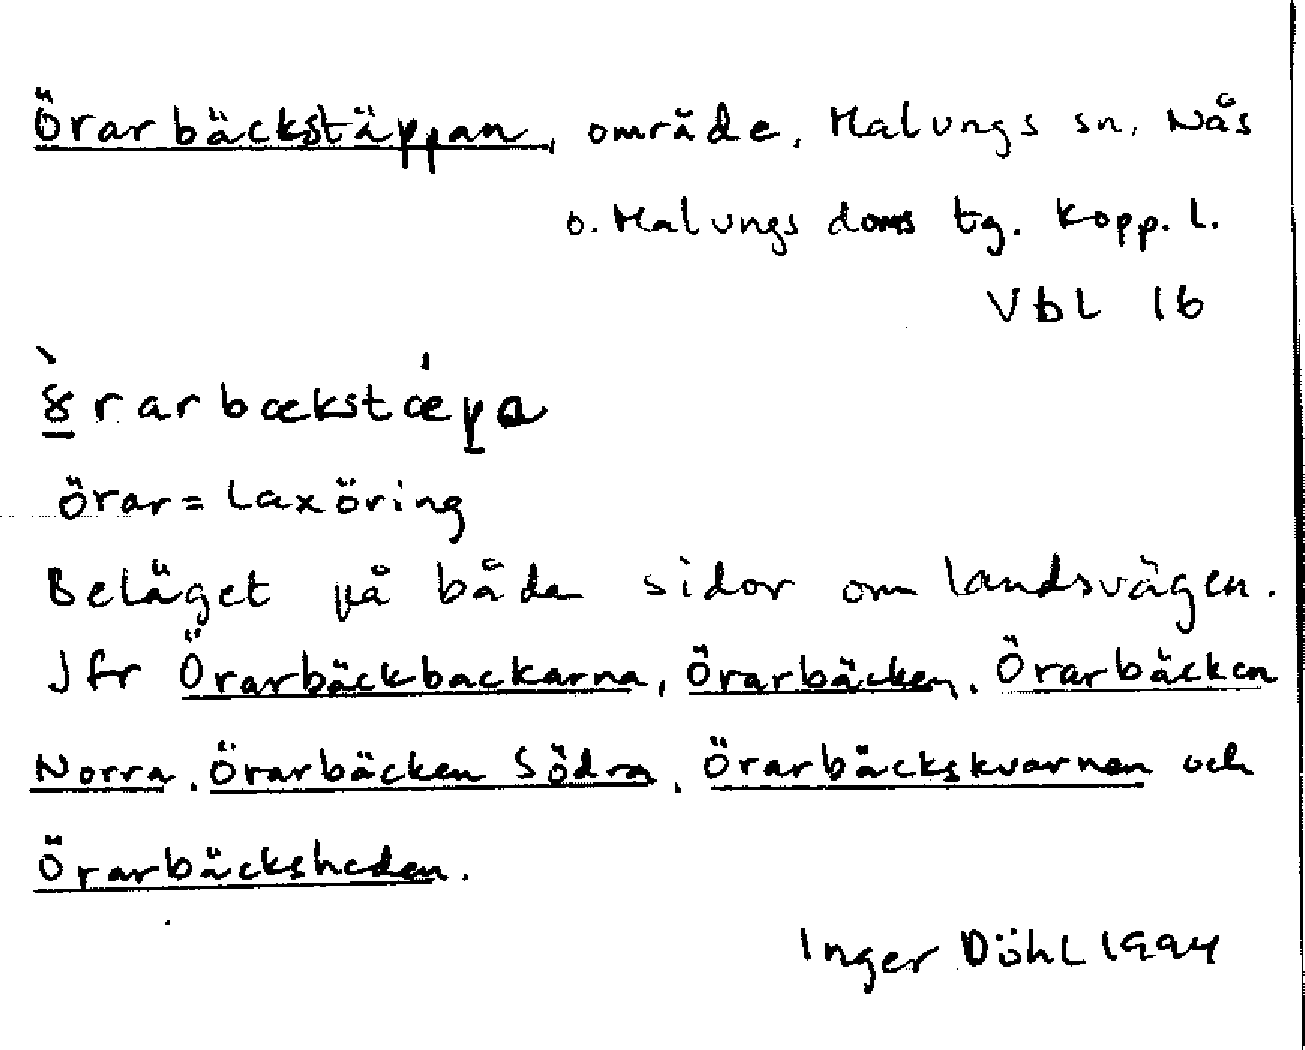 Örarbäckstäppan, område, Malungs sn, Nås
o. Malungs doms tg. Kopp. l.
Vbl 16
ȣ̀rarbækstǽpa
örar = Laxöring
Beläget på båda sidor om landsvägen.
Jfr Örarbäckbackarna, Örarbäcken, Örarbäcken
Norra, Örarbäcken Södra, Örarbäckskvarnen och
Örarbäcksheden.
Inger Döhl 1994